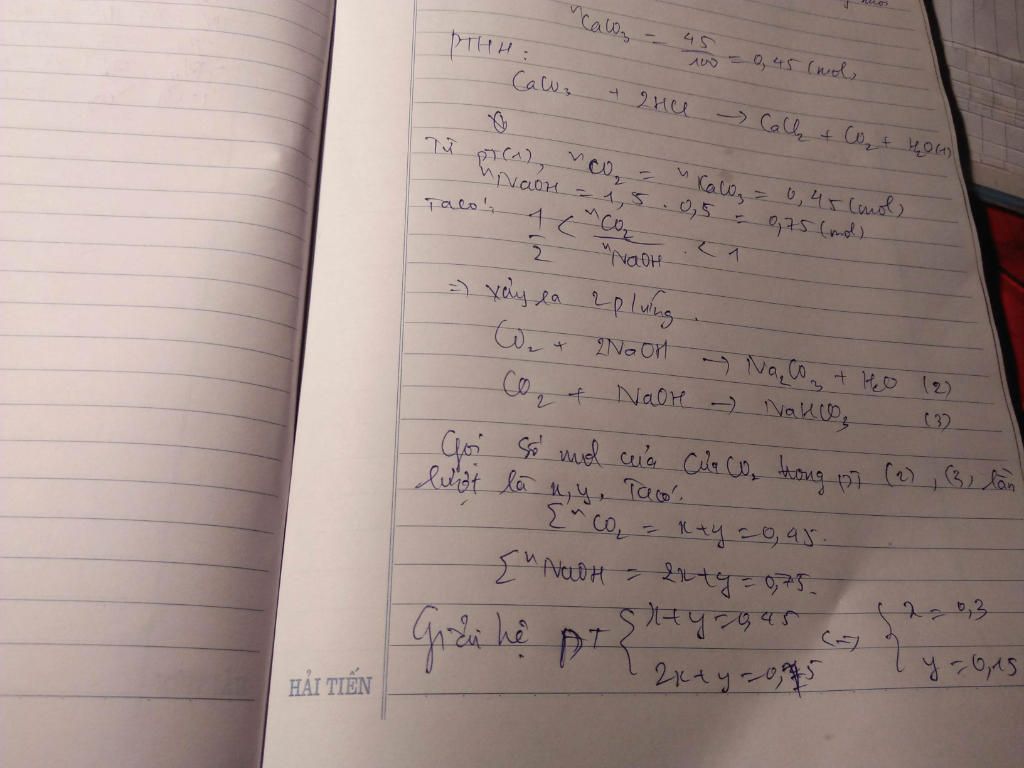 nCaCO₃ = 45/100 = 0,45 (mol)
PTHH:
CaCO₃ + 2HCl → CaCl₂ + CO₂ + H₂O (1)
Từ pt(1), nCO₂ = nCaCO₃ = 0,45 (mol)
nNaOH = 1,5 . 0,5 = 0,75 (mol)
Ta có: 1/2 < nCO₂/nNaOH < 1
=> xảy ra 2 p/ứng.
CO₂ + 2NaOH → Na₂CO₃ + H₂O (2)
CO₂ + NaOH → NaHCO₃ (3)
Gọi số mol của của CO₂ trong pt (2), (3) lần
lượt là x, y. Ta có:
Σ nCO₂ = x+y = 0,45.
Σ nNaOH = 2x+y = 0,75.
Giải hệ PT { x+y = 0,45 <=> { x = 0,3
2x+y = 0,75 y = 0,15
HẢI TIẾN